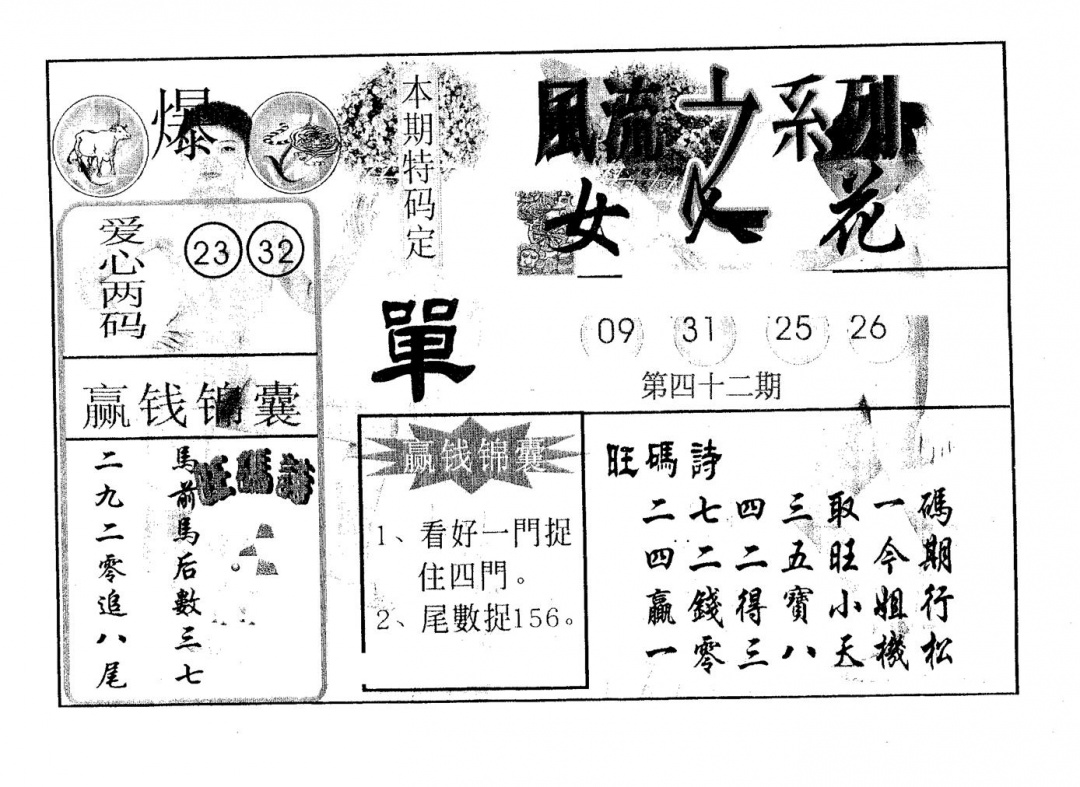 爆
爱心两码
23 32
赢钱锦囊
馬前馬后數三七
二九二零追八尾
旺碼詩
本期特码定
單
風流之系列
女人花
09 31 25 26
第四十二期
赢钱锦囊
1、看好一門捉
住四門。
2、尾數捉156。
旺碼詩
二七四三取一碼
四二二五旺今期
贏錢得寶小姐行
一零三八天機松